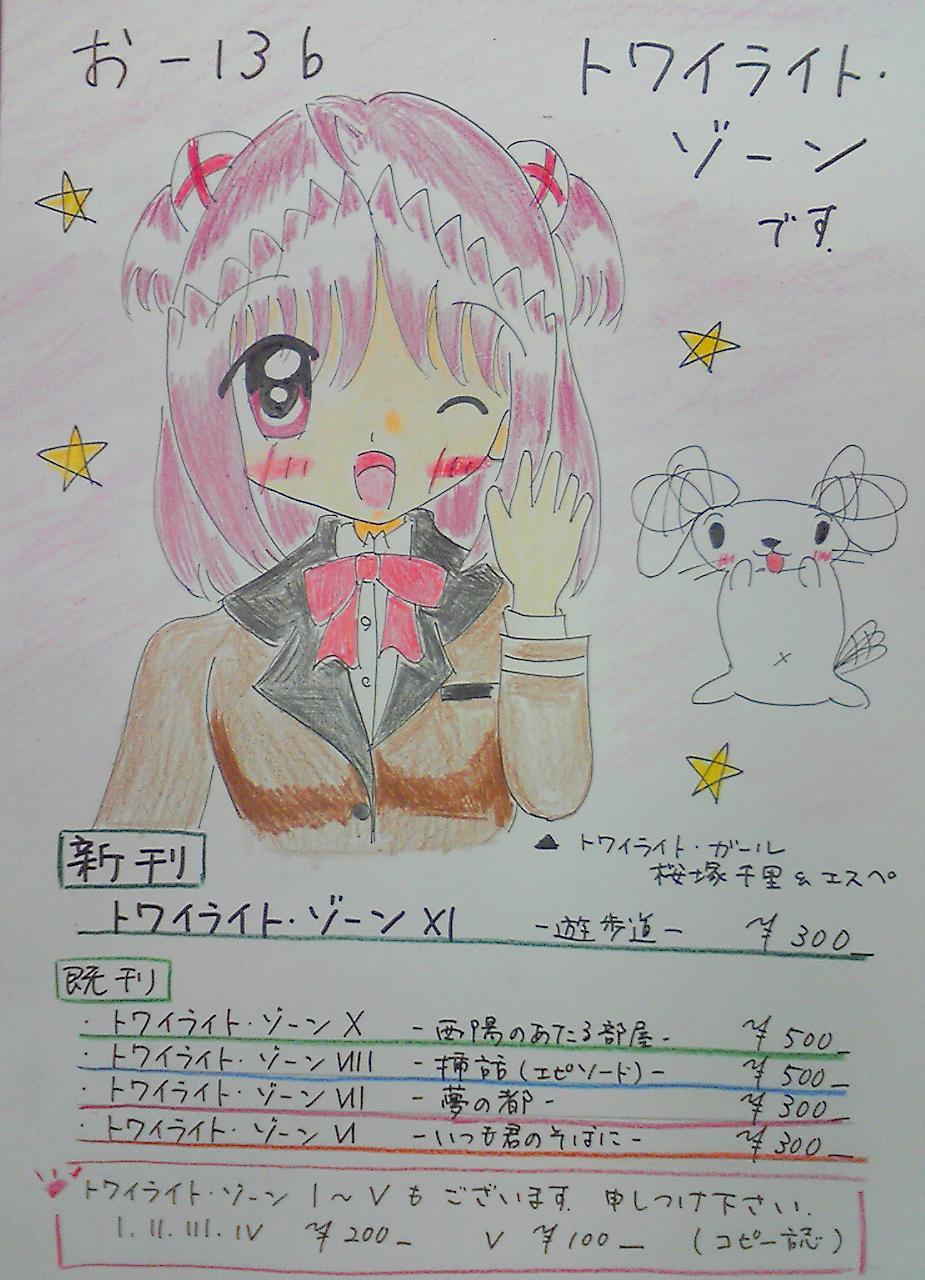 おー13b
トワイライト・
ゾーン
です
▲ トワイライト・ガール
桜塚千里&エスペ
新刊
トワイライト・ゾーン XI -遊歩道- ¥300_
既刊
・トワイライト・ゾーン X -西陽のあたる部屋- ¥500_
・トワイライト・ゾーン VIII -挿話(エピソード)- ¥500_
・トワイライト・ゾーン VII -夢の都- ¥300_
・トワイライト・ゾーン VI -いつも君のそばに- ¥300_
トワイライト・ゾーン I～Vもございます。申しつけ下さい.
I.II.III.IV ¥200_ V ¥100_ (コピー誌)